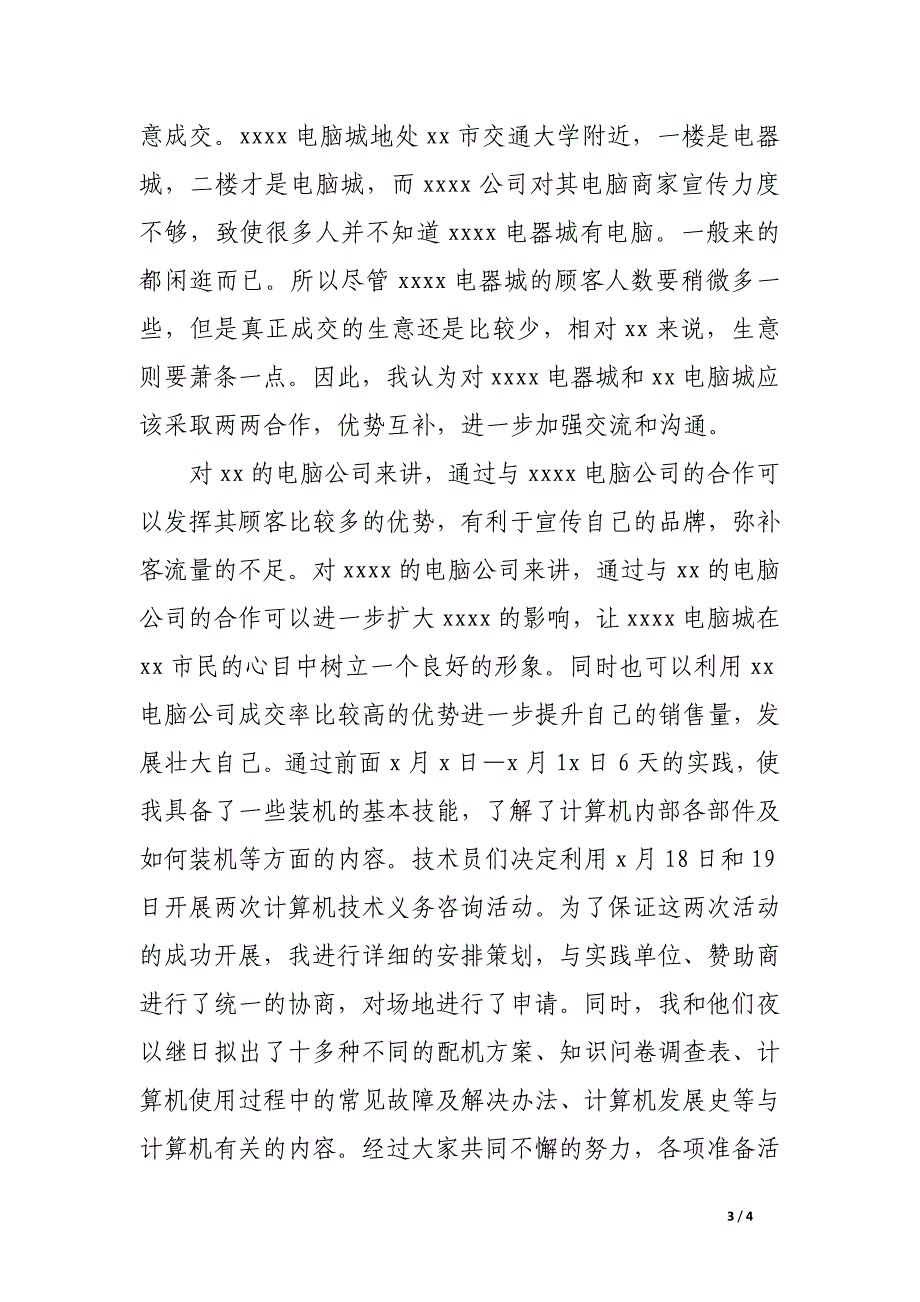 意成交。xxxx 电脑城地处 xx 市交通大学附近，一楼是电器
城，二楼才是电脑城，而 xxxx 公司对其电脑商家宣传力度
不够，致使很多人并不知道 xxxx 电器城有电脑。一般来的
都闲逛而已。所以尽管 xxxx 电器城的顾客人数要稍微多一
些，但是真正成交的生意还是比较少，相对 xx 来说，生意
则要萧条一点。因此，我认为对 xxxx 电器城和 xx 电脑城应
该采取两两合作，优势互补，进一步加强交流和沟通。
对 xx 的电脑公司来讲，通过与 xxxx 电脑公司的合作可
以发挥其顾客比较多的优势，有利于宣传自己的品牌，弥补
客流量的不足。对 xxxx 的电脑公司来讲，通过与 xx 的电脑
公司的合作可以进一步扩大 xxxx 的影响，让 xxxx 电脑城在
xx 市民的心目中树立一个良好的形象。同时也可以利用 xx
电脑公司成交率比较高的优势进一步提升自己的销售量，发
展壮大自己。通过前面 x 月 x 日—x 月 1x 日 6 天的实践，使
我具备了一些装机的基本技能，了解了计算机内部各部件及
如何装机等方面的内容。技术员们决定利用 x 月 18 日和 19
日开展两次计算机技术义务咨询活动。为了保证这两次活动
的成功开展，我进行详细的安排策划，与实践单位、赞助商
进行了统一的协商，对场地进行了申请。同时，我和他们夜
以继日拟出了十多种不同的配机方案、知识问卷调查表、计
算机使用过程中的常见故障及解决办法、计算机发展史等与
计算机有关的内容。经过大家共同不懈的努力，各项准备活
3 / 4